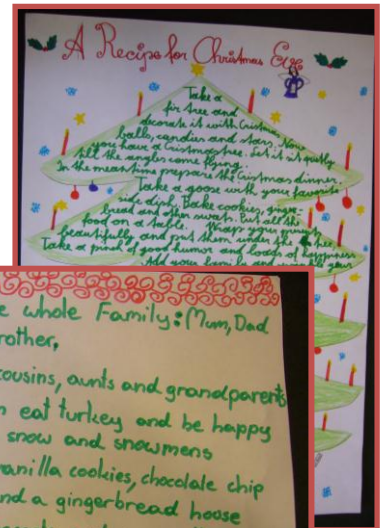 A Recipe for Christmas Eve
Take a
fir tree and
decorate it with Cristmas
balls, candies and stars. Now
you have a Cristmas tree. Let it sit quietly
till the angles come flying.
In the meantime prepare the Cristmas dinner.
Take a goose with your favorite
side dish. Bake cookies, ginger-
bread and other sweets. Put all the
food on a table. Wraps your
beautifully and put them under the tree.
Take a pinch of good humor and loads of happiness
Add your family and your
e whole Family: Mum, Dad
rother,
cousins, aunts and grandparents
n eat turkey and be happy
snow and snowmens
vanilla cookies, chocolate chip
nd a gingerbread hoose